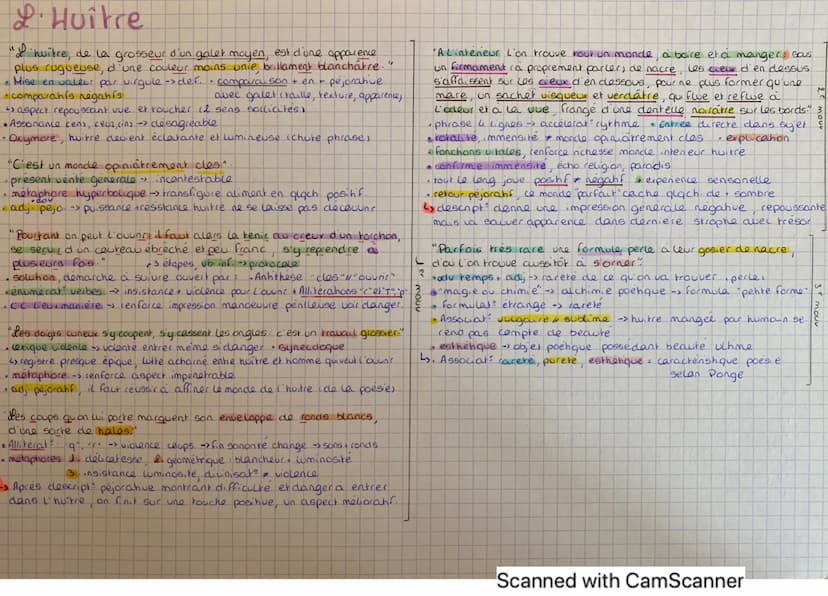 L'Huître
"L'huître, de la grosseur d'un galet moyen, est d'une apparence
plus rugueuse, d'une couleur moins unie, brillament blanchâtre."
• Mise en valeur par virgule → déf. • comparaison + en + péjorative
• comparatifs négatifs avec galet (taille, texture, apparence)
↳ aspect repoussant vue et toucher (2 sens sollicités)
→ désagréable
• Oxymore, huitre devient éclatante et lumineuse (chute phrase)
"C'est un monde opiniâtrement clos"
• présent vérité générale → incontestable
• métaphore hyperbolique → transfigure aliment en qlqch positif
• adj. péjo → puissance + résistance huitre ne se laisse pas découvrir
"Pourtant on peut l'ouvrir: il faut alors la tenir au creux d'un torchon,
se servir d'un couteau ébréché et peu franc, s'y reprendre à
plusieurs fois" → 3 étapes, vb inf. → protocole
• solution, démarche à suivre ouvert par : • Antithèse "clos" "ouvrir"
• énumérat° verbes → insistance + violence pour l'ouvrir + Allitérations "r" et "T", "p"
CC lieu manière → renforce impression manoeuvre périlleuse voir danger.
"Les doigts curieux s'y coupent, s'y cassent les ongles: c'est un travail grossier"
• lexique violence → volonté entrer même si danger • synecdoque
↳ registre presque épique, lutte acharnée entre huitre et homme qui veut l'ouvrir
• métaphore → renforce aspect impénétrable
• adj péjoratif, il faut réussir à affiner le monde de l'huitre (de la poésie)
"Les coups qu'on lui porte marquent son enveloppe de ronds blancs,
d'une sorte de halos."
• Allitérat° "q", "r" → violence coups → fin sonorité change → sons + ronds
• métaphores 1. délicatesse, 2. géométrique : blancheur + luminosité
3. insistance luminosité, divinisat° ≠ violence
→ Après descript° péjorative montrant difficulté et danger à entrer
dans l'huitre, on finit sur une touche positive, un aspect mélioratif.
"A l'intérieur l'on trouve tout un monde, à boire et à manger: sous
un firmament (à proprement parler) de nacre, les cieux d'en dessus
s'affaissent sur les cieux d'en dessous, pour ne plus former qu'une
mare, un sachet visqueux et verdâtre, qui flue et reflue à
l'odeur et à la vue, frangé d'une dentelle noirâtre sur les bords"
• phrase 4 lignes → accélérat° rythme • Entrée directe dans sujet
• totalité, immensité ≠ monde opiniâtrement clos • explication
• fonctions vitales, renforce richesse monde intérieur huitre
• confirme immensité, écho religion, paradis
• tout le long jeu positif ≠ négatif • expérience sensorielle
• retour péjoratif, ce monde "parfait" cache qlqch de + sombre
↳ descript° donne une impression générale négative, repoussante
mais va sauver apparence dans dernière strophe avec trésor
2e mouv
"Parfois très rare une formule perle à leur gosier de nacre,
d'où l'on trouve aussitôt à s'orner"
• adv temps + adj → rareté de ce qu'on va trouver : perle
• "magie ou chimie" → alchimie poétique → formula "petite forme"
• formulat° étrange → rareté
• Associat° vulgaire ≠ sublime → huitre mangée par humain se
rend pas compte de beauté
• esthétique → objet poétique possédant beauté ultime
↳ Associat° rareté, pureté, esthétique = caractéristique poésie
selon Ponge
3e mouv
Scanned with CamScanner